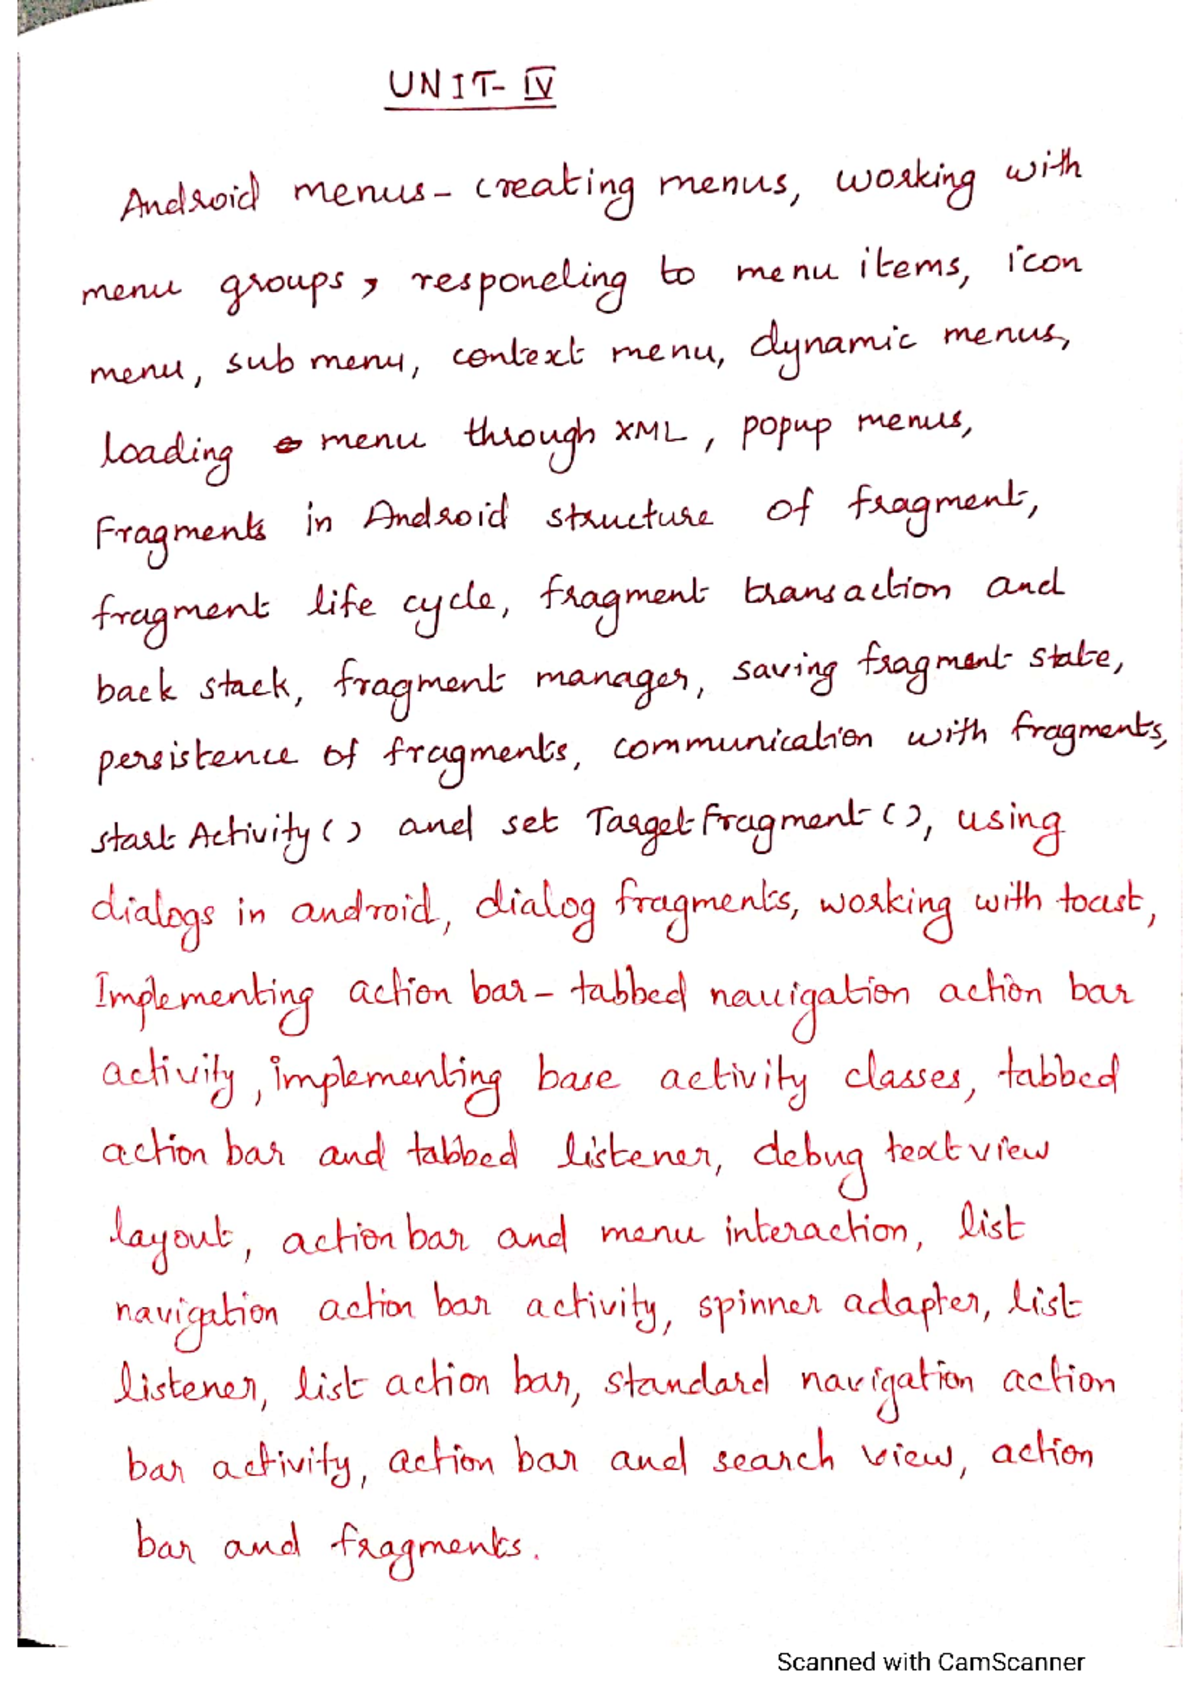 UNIT- IV
Android menus- creating menus, working with
menu groups, responeling to menu items, icon
menu, sub menu, context menu, dynamic menus,
loading menu through XML, popup menus,
Fragments in Android structure of fragment,
fragment life cycle, fragment transaction and
back stack, fragment manager, saving fragment state,
persistence of fragments, communication with fragments,
start Activity() and set Target fragment(), using
dialogs in android, dialog fragments, working with toast,
Implementing action bar- tabbed navigation action bar
activity, implementing base activity classes, tabbed
action bar and tabbed listener, debug text view
layout, action bar and menu interaction, list
navigation action bar activity, spinner adapter, list
listener, list action bar, standard navigation action
bar activity, action bar and search view, action
bar and fragments.
Scanned with CamScanner